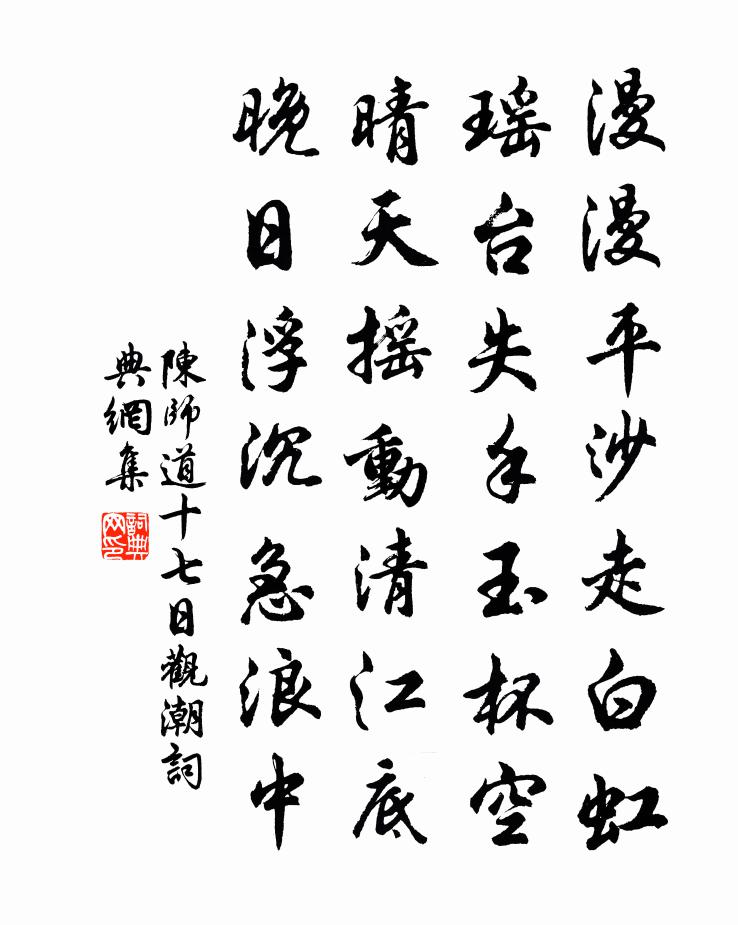 漫漫平沙走白虹
瑶台失手玉杯空
晴天摇動清江底
晚日浮沉急浪中
陳師道十七日觀潮詞
典網集
詞典网印